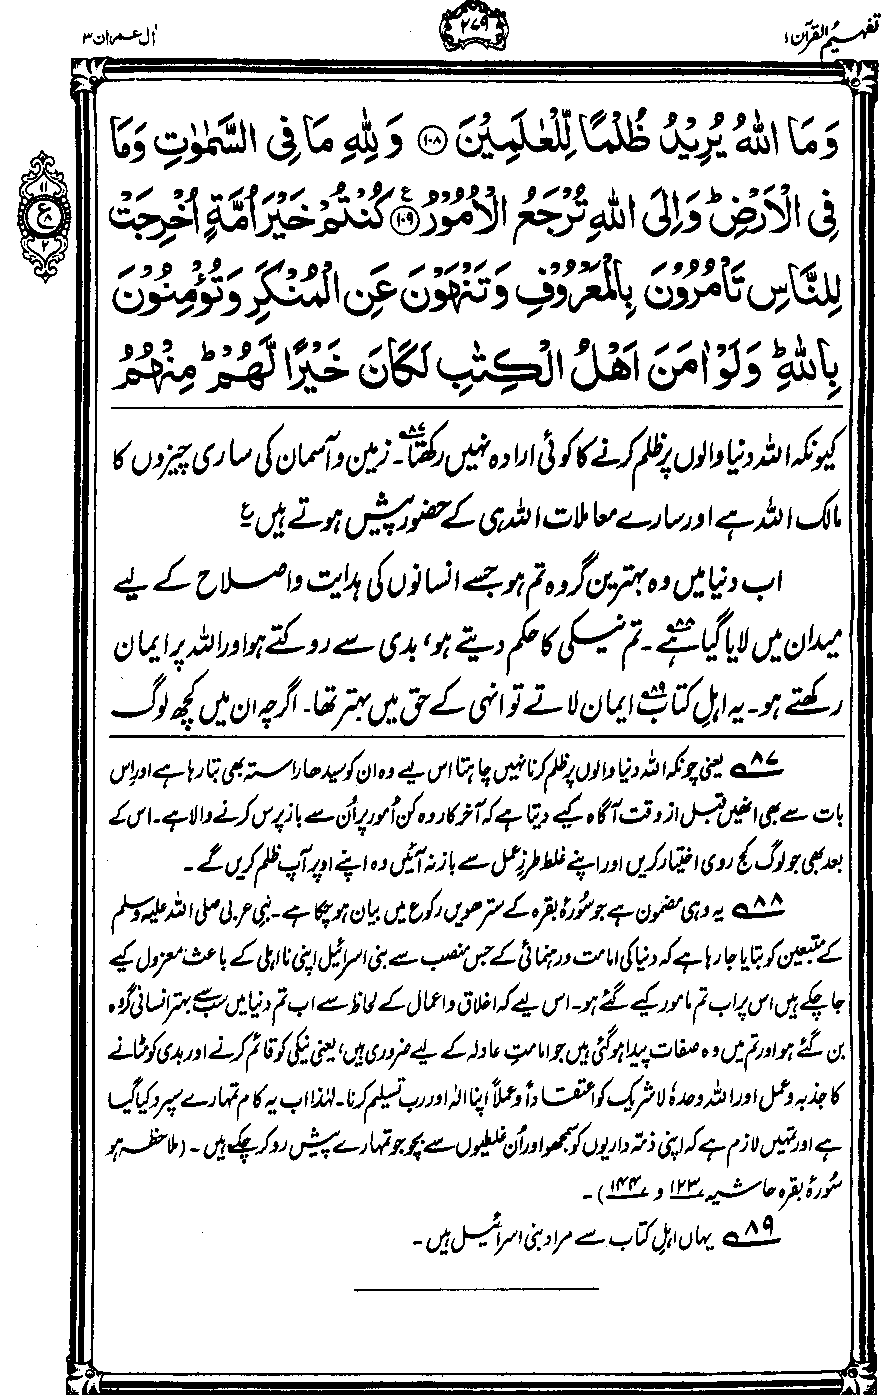 تفہیم القرآن ۱
۲۷۹
اٰل عمران ۳
وَمَا اللّٰهُ يُرِيْدُ ظُلْمًا لِّلْعٰلَمِيْنَ ۝۱۰۸ وَلِلّٰهِ مَا فِي السَّمٰوٰتِ وَمَا
فِي الْاَرْضِ ؕ وَاِلَى اللّٰهِ تُرْجَعُ الْاُمُوْرُ ۝۱۰۹ ع كُنْتُمْ خَيْرَ اُمَّةٍ اُخْرِجَتْ
۱۱
ع
۸
۲
لِلنَّاسِ تَاْمُرُوْنَ بِالْمَعْرُوْفِ وَتَنْهَوْنَ عَنِ الْمُنْكَرِ وَتُؤْمِنُوْنَ
بِاللّٰهِ ؕ وَلَوْ اٰمَنَ اَهْلُ الْكِتٰبِ لَكَانَ خَيْرًا لَّهُمْ ؕ مِنْهُمُ
کیونکہ اللہ دنیا والوں پر ظلم کرنے کا کوئی ارادہ نہیں رکھتا۸۷۔ زمین و آسمان کی ساری چیزوں کا
مالک اللہ ہے اور سارے معاملات اللہ ہی کے حضور پیش ہوتے ہیں ع
اب دنیا میں وہ بہترین گروہ تم ہو جسے انسانوں کی ہدایت و اصلاح کے لیے
میدان میں لایا گیا ہے۸۸۔ تم نیکی کا حکم دیتے ہو، بدی سے روکتے ہو اور اللہ پر ایمان
رکھتے ہو۔ یہ اہلِ کتاب۸۹ ایمان لاتے تو انہی کے حق میں بہتر تھا۔ اگرچہ ان میں کچھ لوگ
۸۷ یعنی چونکہ اللہ دنیا والوں پر ظلم کرنا نہیں چاہتا اس لیے وہ ان کو سیدھا راستہ بھی بتا رہا ہے اور اِس
بات سے بھی انھیں قبل از وقت آگاہ کیے دیتا ہے کہ آخر کار وہ کن اُمور پر اُن سے باز پرس کرنے والا ہے۔ اس کے
بعد بھی جو لوگ کج روی اختیار کریں اور اپنے غلط طرزِ عمل سے باز نہ آئیں وہ اپنے اوپر آپ ظلم کریں گے۔
۸۸ یہ وہی مضمون ہے جو سُورۂ بقرہ کے سترھویں رکوع میں بیان ہو چکا ہے۔ نبی عربی صلی اللہ علیہ وسلم
کے متبعین کو بتایا جا رہا ہے کہ دنیا کی امامت و رہنمائی کے جس منصب سے بنی اسرائیل اپنی نااہلی کے باعث معزول کیے
جا چکے ہیں اس پر اب تم مامور کیے گئے ہو۔ اس لیے کہ اخلاق و اعمال کے لحاظ سے اب تم دنیا میں سب سے بہتر انسانی گروہ
بن گئے ہو اور تم میں وہ صفات پیدا ہو گئی ہیں جو امامتِ عادلہ کے لیے ضروری ہیں، یعنی نیکی کو قائم کرنے اور بدی کو مٹانے
کا جذبہ و عمل اور اللہ وحدہٗ لا شریک کو اعتقاداً و عملاً اپنا الٰہ اور رب تسلیم کرنا۔ لہٰذا اب یہ کام تمہارے سپرد کیا گیا
ہے اور تمہیں لازم ہے کہ اپنی ذمّہ داریوں کو سمجھو اور اُن غلطیوں سے بچو جو تمہارے پیش رو کر چکے ہیں۔ (ملاحظہ ہو
سُورۂ بقرہ حاشیہ ۱۲۳ و ۱۴۴)۔
۸۹ یہاں اہلِ کتاب سے مراد بنی اسرائیل ہیں۔